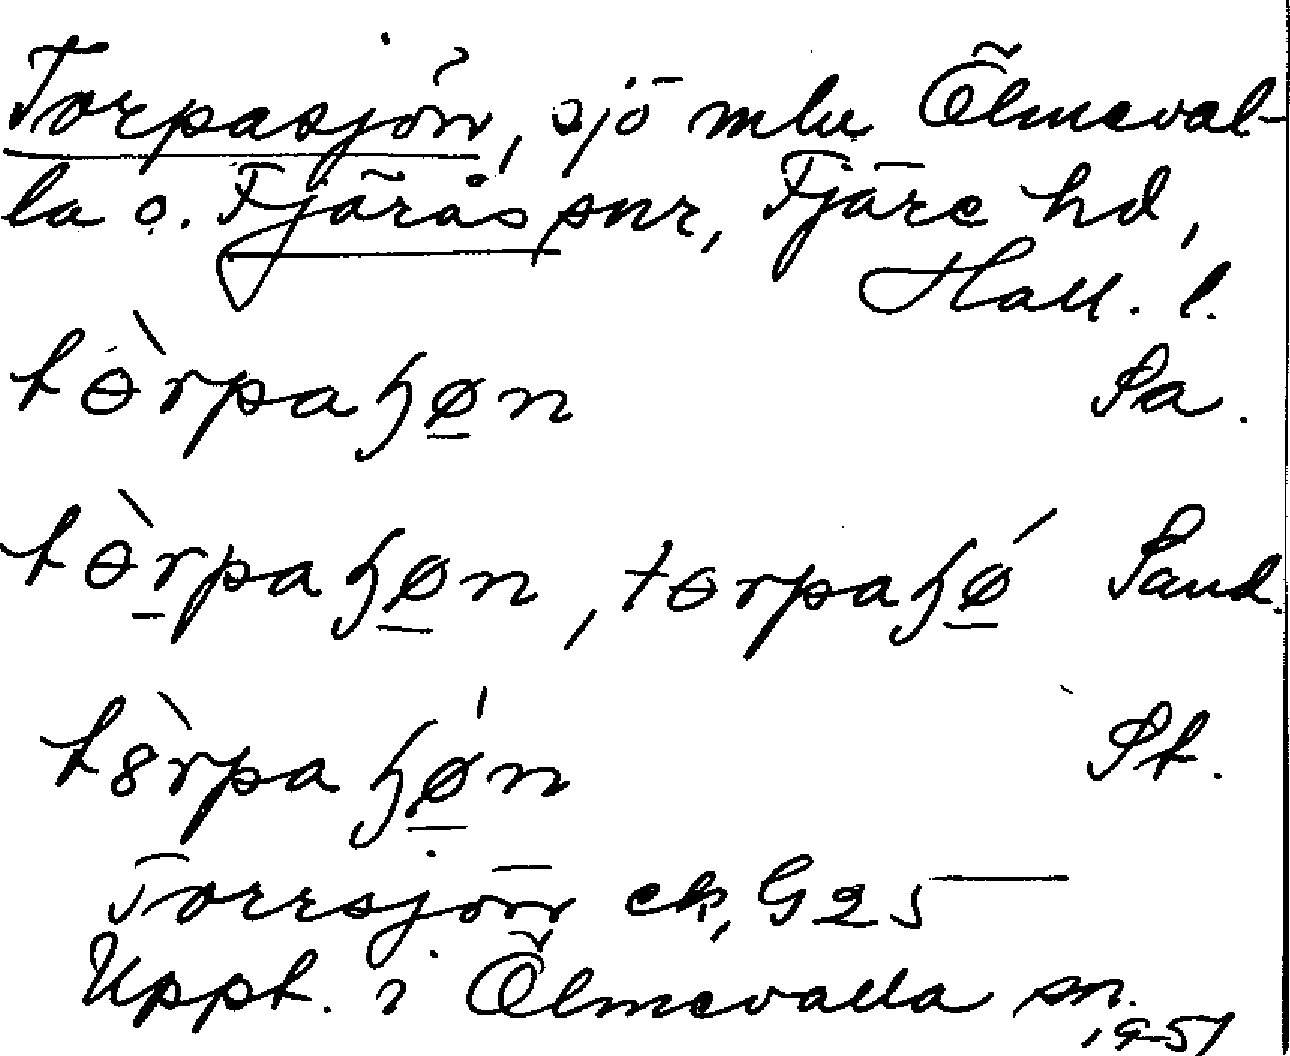 Torpasjön, sjö mlu Ölmeval-
la o. Fjärås snr, Fjäre hd,
Hall. l.
tɵ̀rpaɧø̱n Pa.
tɵ̀r̠paɧø̱n, tɵrpaɧǿ̱ Paud.
t8̀rpaɧǿ̱n Pt.
Torrsjön ek, G 25 —
Uppt. i Ölmevalla sn.
1951